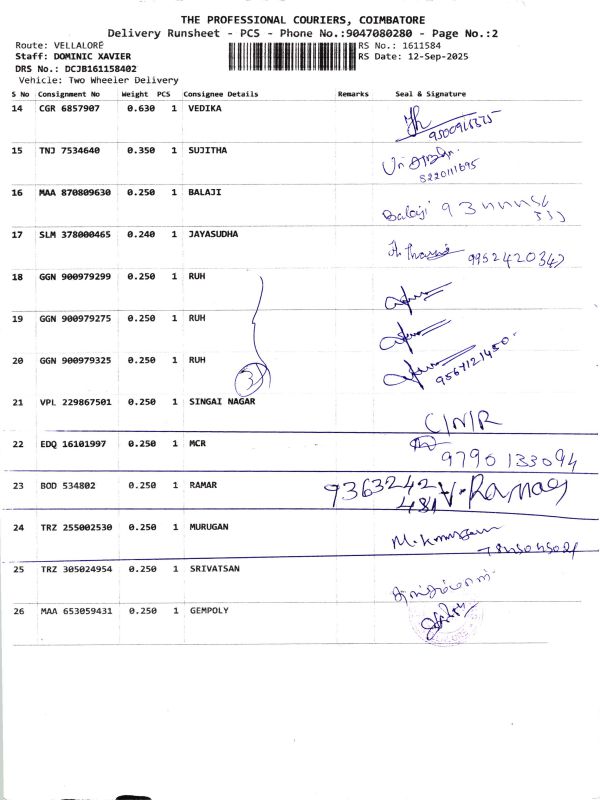 THE PROFESSIONAL COURIERS, COIMBATORE
Delivery Runsheet - PCS - Phone No.:9047080280 - Page No.:2
Route: VELLALORE RS No.: 1611584
Staff: DOMINIC XAVIER RS Date: 12-Sep-2025
DRS No.: DCJB161158402
Vehicle: Two Wheeler Delivery
S No Consignment No Weight PCS Consignee Details Remarks Seal & Signature
14 CGR 6857907 0.630 1 VEDIKA
15 TNJ 7534640 0.350 1 SUJITHA
8220111695
16 MAA 870809630 0.250 1 BALAJI
Balaji
17 SLM 378000465 0.240 1 JAYASUDHA
9952420347
18 GGN 900979299 0.250 1 RUH
19 GGN 900979275 0.250 1 RUH
20 GGN 900979325 0.250 1 RUH
3
9567121450
21 VPL 229867501 0.250 1 SINGAI NAGAR
22 EDQ 16101997 0.250 1 MCR
9790133094
23 BOD 534802 0.250 1 RAMAR
9363242
481
24 TRZ 255002530 0.250 1 MURUGAN
25 TRZ 305024954 0.250 1 SRIVATSAN
26 MAA 653059431 0.250 1 GEMPOLY